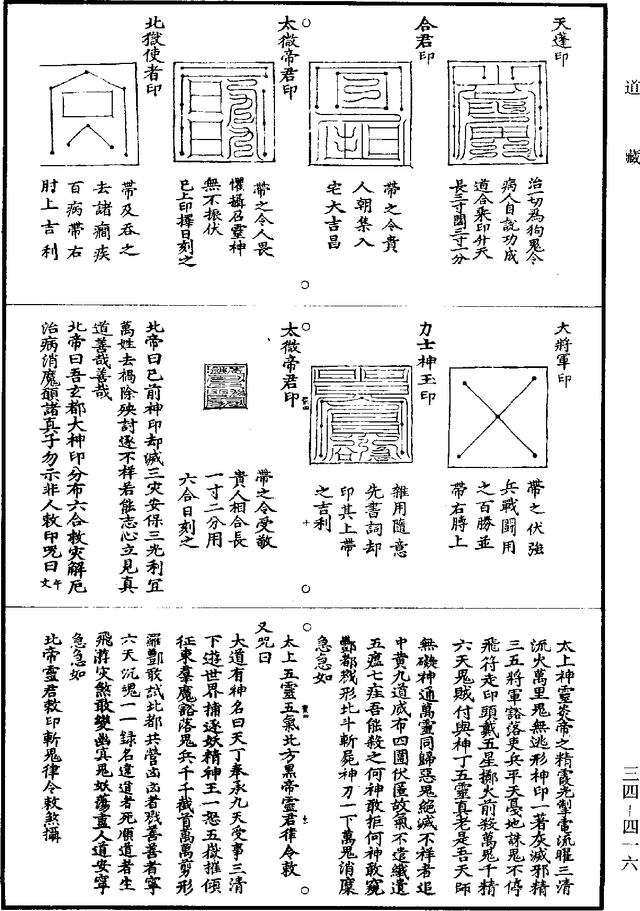 道藏
天蓬印
治一切為狗鬼令
病人自說功成
道合乘印升天
長三寸闊三寸一分
合君印
帶之令貴
人朝集入
宅大吉昌
太微帝君印
帶之令人畏
懼攝召靈神
無不振伏
已上印擇日刻之
北獄使者印
帶及吞之
去諸癇疾
百病帶右
肘上吉利
大將軍印
帶之伏強
兵戰鬪用
之百勝並
帶右膊上
力士神王印
雜用隨意
先書詞却
印其上帶
之吉利
太微帝君印
帶之令受敬
貴人相合長
一寸二分用
六合日刻之
北帝曰已前神印却滅三灾安保三光利宜
萬姓去禍除殃討逐不祥若能志心立見真
道善哉善哉
北帝曰吾玄都大神印分布六合救灾解厄
治病消魔願諸真子勿示非人敕印咒曰
太上神靈炎帝之精霞光掣電流曜三清
流火萬里鬼無逃形神印一著灰滅邪精
三五將軍豁落吏兵平天憂地誅鬼不停
飛符走印頭戴五星擲火前殺萬鬼千精
六天鬼賊付與神丁五靈真老是吾天師
無礙神通萬靈同歸惡鬼絕滅不祥者追
中黃九道威布四圍伏匿故氣不造纖遺
五瘟七疰吾能殺之何神敢拒何神敢窺
酆都戮形北斗斬屍神刀一下萬鬼消糜
急急如
太上五靈五氣北方黑帝靈君律令敕
又咒曰
大道有神名曰天丁奉承九天受事三清
下遊世界捕逐妖精神王一怒五嶽摧傾
征東羣魔豁落鬼兵千千截首萬萬剪形
羅酆敢試北都共營凶凶者戮善善者寧
六天沉魂一一錄名違道者死順道者生
飛游灾煞敢變幽冥鬼妖蕩盡人道安寧
急急如
北帝靈君敕印斬鬼律令敕煞攝
三四—四一六